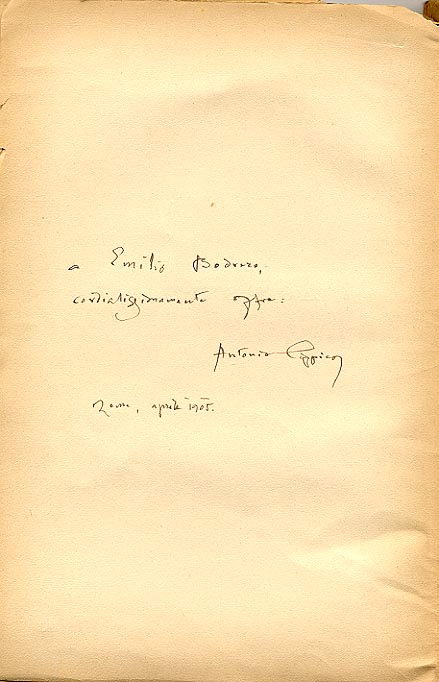 a Emilio Bodrero,
cordialissimamente offre:
Antonio Cippico
Roma, aprile 1905.